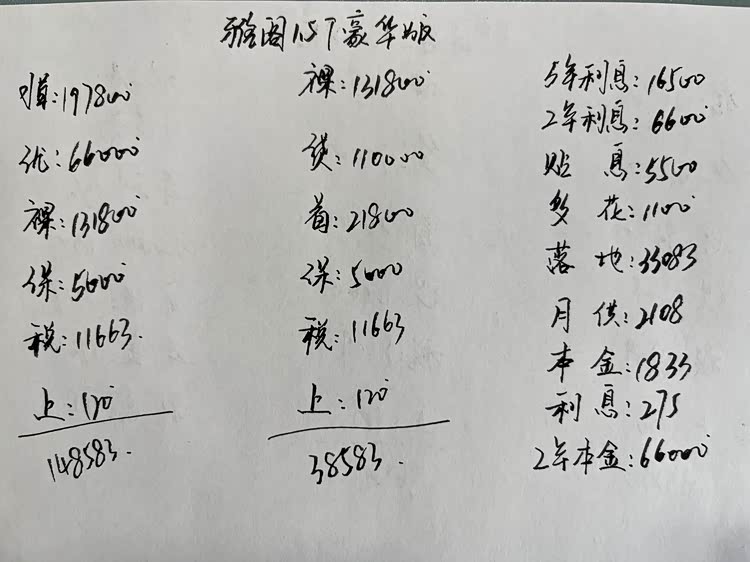 雅阁1.5T豪华版
指:197800
优:66000
裸:131800
保:5000
税:11663.
上:120
148583.
裸:131800
贷:110000
首:21800
保:5000
税:11663
上:120
38583.
5年利息:16500
2年利息:6600
贴息:5500
多花:1100
落地:33083
月供:2108
本金:1833
利息:275
2年本金:66000